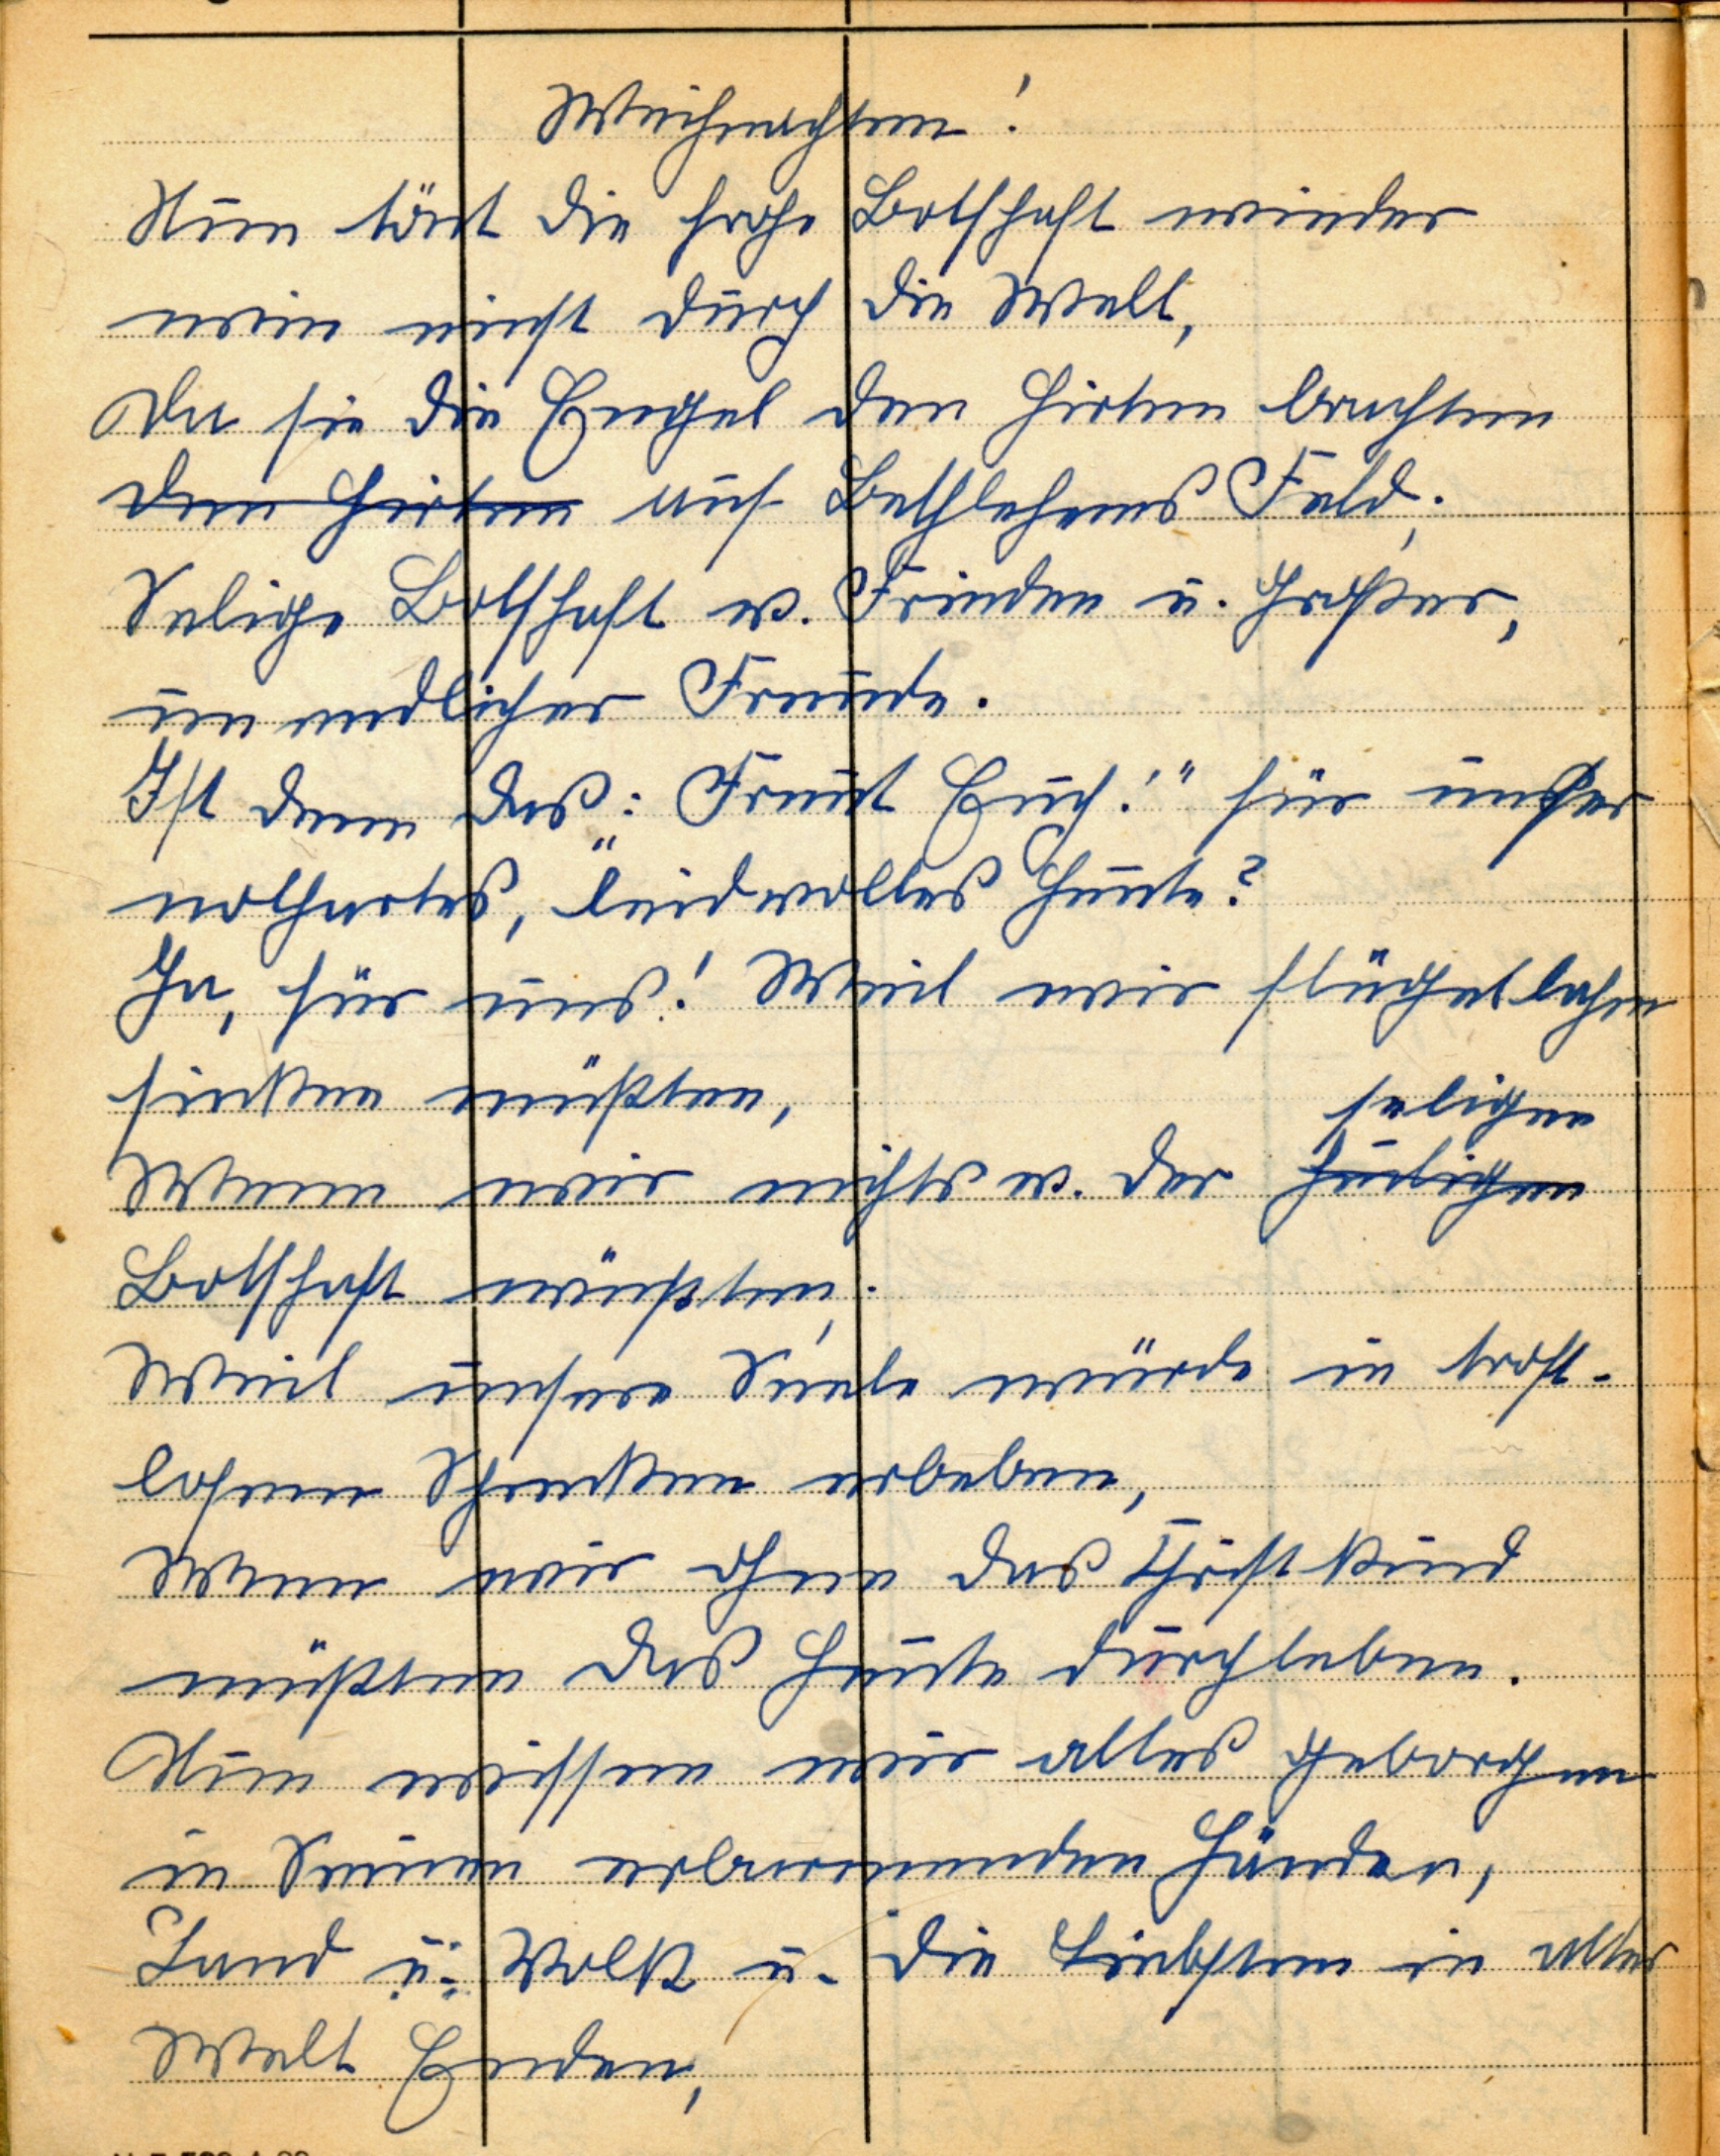 Weihnachten!
Nun tönt die frohe Botschaft wieder
wie einst durch die Welt,
Da sie die Engel den Hirten brachten
den Hirten auf Bethlehems Feld;
Selige Botschaft v. Frieden u. großer,
unendlicher Freude.
Ist denn das: „Freut Euch!" für unser
nothartes, leidvolles Heute?
Ja, für uns! Weil wir flügellahm
sinken müßten,
seligen
Wenn wir nichts v. der heiligen
Botschaft wüßten;
Weil unsere Seele würde in trost-
losem Schrecken erbeben,
Wenn wir ohne das Christkind
müßten das Heute durchleben.
Nun wissen wir alles geborgen
in Seinen erbarmenden Händen,
Land u. Volk u. die Liebsten in aller
Welt Enden,